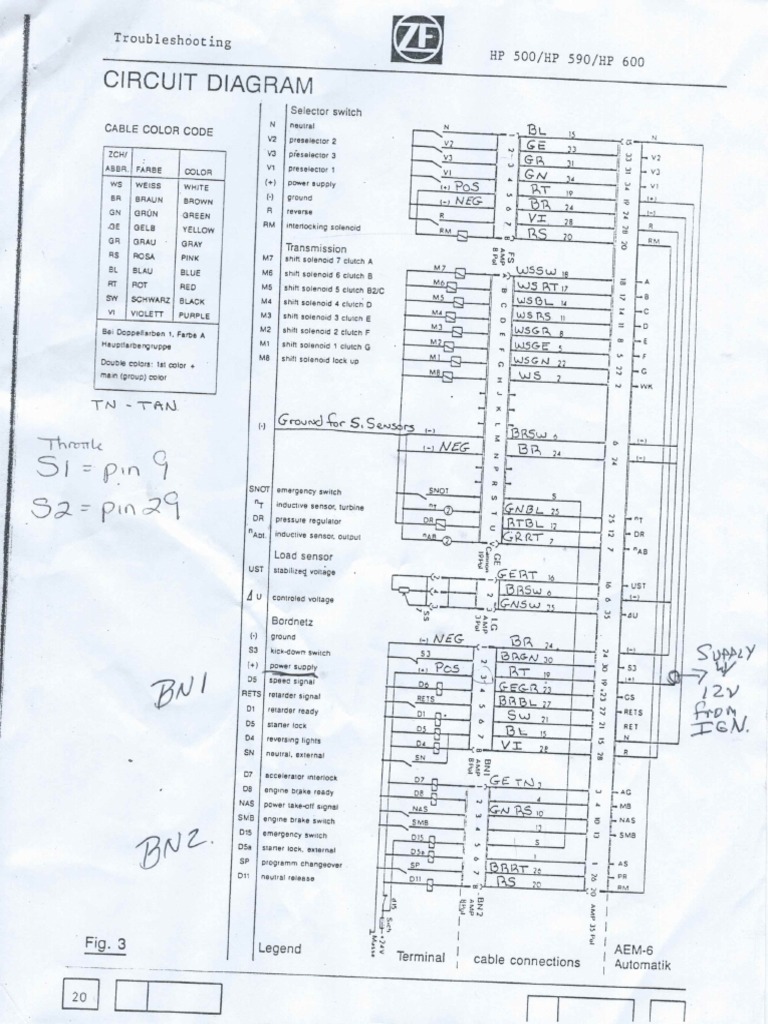 Troubleshooting
ZF
HP 500/HP 590/HP 600
CIRCUIT DIAGRAM
CABLE COLOR CODE
ZCH/ ABBR. FARBE COLOR
WS WEISS WHITE
BR BRAUN BROWN
GN GRÜN GREEN
GE GELB YELLOW
GR GRAU GRAY
RS ROSA PINK
BL BLAU BLUE
RT ROT RED
SW SCHWARZ BLACK
VI VIOLETT PURPLE
Bei Doppelfarben 1. Farbe
Hauptfarbengruppe
Double colors: 1st color +
main (group) color
TN - TAN
Throttle
S1 = pin 9
S2 = pin 29
BN1
BN2.
Selector switch
N neutral
V2 preselector 2
V3 preselector 3
V1 preselector 1
(+) power supply
(-) ground
R reverse
RM interlocking solenoid
Transmission
M7 shift solenoid 7 clutch A
M6 shift solenoid 6 clutch B
M5 shift solenoid 5 clutch B2/C
M4 shift solenoid 4 clutch D
M3 shift solenoid 3 clutch E
M2 shift solenoid 2 clutch F
M1 shift solenoid 1 clutch G
M8 shift solenoid lock up
(-) Ground for S. Sensors (-)
SNOT emergency switch
nT inductive sensor, turbine
DR pressure regulator
nAbt. inductive sensor, output
Load sensor
UST stabilized voltage
ΔU controled voltage
Bordnetz
(-) ground
S3 kick-down switch
(+) power supply
D5 speed signal
RETS retarder signal
D1 retarder ready
D5 starter lock
D4 reversing lights
SN neutral, external
D7 accelerator interlock
D8 engine brake ready
NAS power take-off signal
SMB engine brake switch
D15 emergency switch
D5a starter lock, external
SP programm changeover
D11 neutral release
N 1 BL 15 15 N
V2 2 GE 33 33 V2
V3 3 GR 31 31 V3
V1 4 GN 34 34 V1
(+) POS 5 RT 19 19 (+)
(-) NEG 6 BR 24 24 (-)
R 7 VI 28 28 R
RM 8 RS 20 20 RM
FS
AMP 8 Pol
M7 A WSSW 18 18 A
M6 B WSRT 17 17 B
M5 C WSBL 14 14 C
M4 D WSRS 11 11 D
M3 E WSGR 8 8 E
M2 F WSGE 5 5 F
M1 G WSGN 22 22 G
M8 H WS 2 2 WK
J
K
L
M BRSW 6 6 (-)
(-) NEG N BR 24 24 (-)
P
R
SNOT S 5
nT T GNBL 25 25 nT
DR U RTBL 12 12 DR
nAB V GRRT 7 7 nAB
GE
Cannon 19 Pol
1 GERT 16 16 UST
2 BRSW 6 6 (-)
3 GNSW 35 35 ΔU
SS
LG
AMP 3 Pol
(-) NEG 1 BR 24 24 (-)
S3 2 BRGN 30 30 S3
(+) POS 3 RT 19 19 (+)
D6 4 GEGR 23 23 GS
RETS 5 BRBL 27 RETS
D1 6 SW 21 21 RET
D5 7 BL 15 15 N
D4 8 VI 28 28 R
SN
BN1
AMP 8 Pol
SUPPLY
W/
12V
FROM
IGN.
D7 1 GE TN 3 3 AG
D8 2 4 4 MB
NAS 3 GNRS 10 10 NAS
SMB 4 13 13 SMB
D15 5 5
D5a 6 1 1 AS
SP 7 BRRT 26 26 PR
D11 8 RS 20 20 RM
BN2
AMP 8 Pol
AMP 35 Pol
d15
Sich
+24V
Masse
Fig. 3
Legend
Terminal
cable connections
AEM-6
Automatik
20